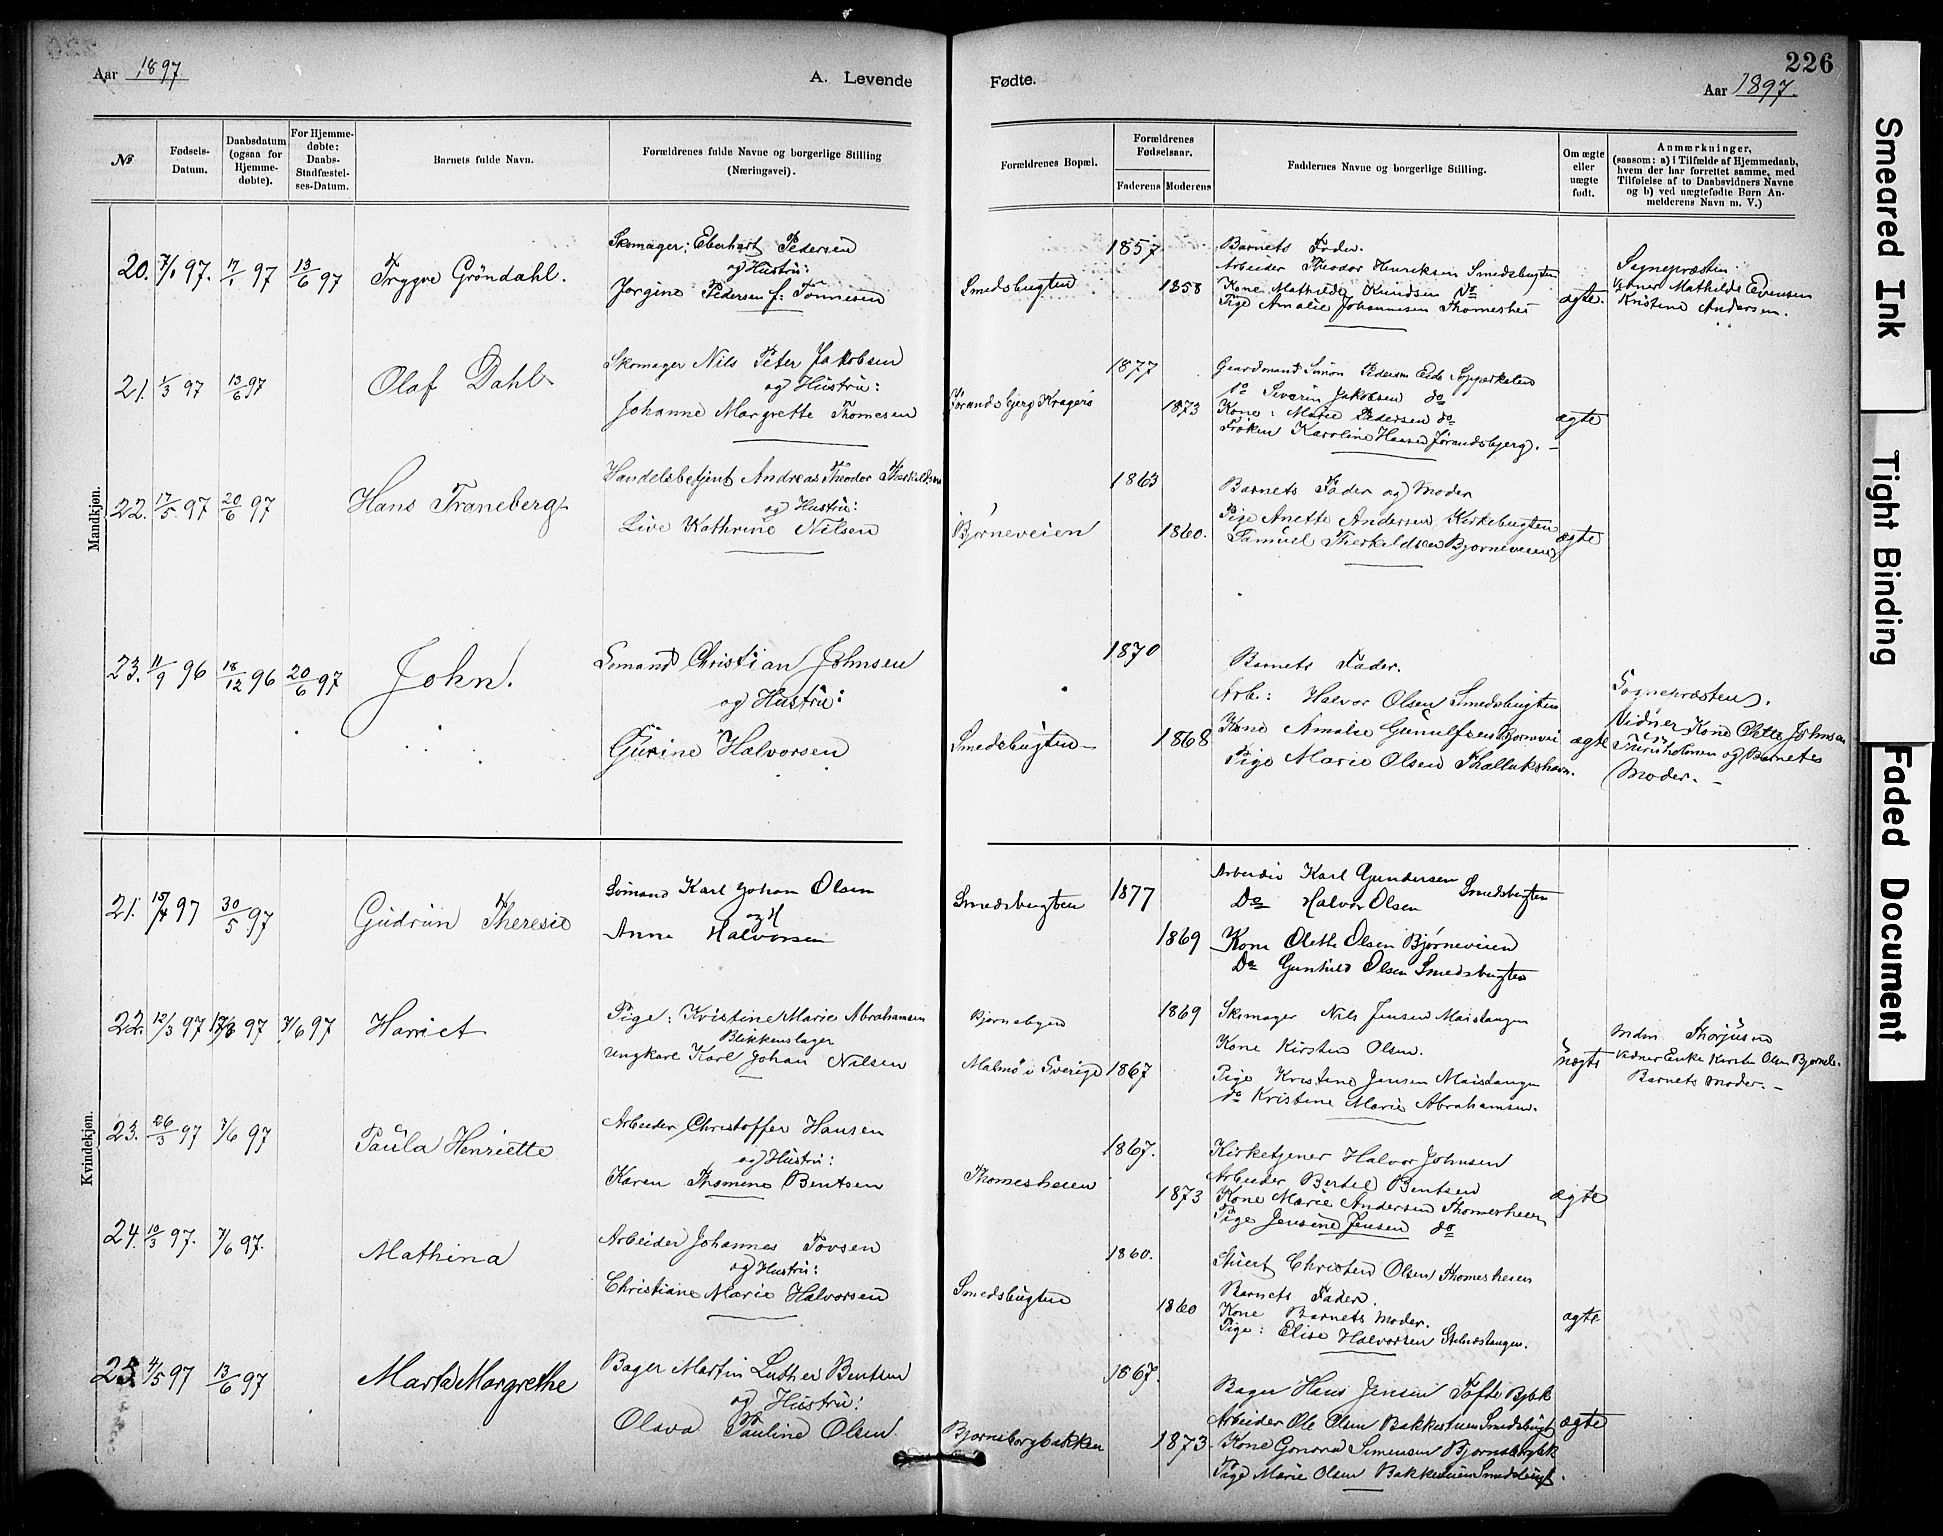 Aar 1897
A. Levende
Fødte.
226
Aar 1897.
No
Fødsels-
Datum.
Daabsdatum
(ogsaa for
Hjemme-
døbte).
For Hjemme-
døbte:
Daabs-
Stadfæstel-
ses-Datum.
Barnets fulde Navn.
Forældrenes fulde Navne og borgerlige Stilling
(Næringsvei).
Forældrenes Bopæl.
Forældrenes
Fødselsaar.
Faderens
Moderens
Faddernes Navne og borgerlige Stilling.
Om ægte
eller
uægte
født.
Anmærkninger,
(saasom: a) i Tilfælde af Hjemmedaab,
hvem der har forrettet samme, med
Tilføielse af to Daabsvidners Navne
og b) ved uægtefødte Børn An-
melderens Navn m. V.)
Mandkjøn.
20. 7/1 97. 17/1 97 13/6 97 Trygve Gröndahl.
Skomager: Eberhart Pedersen
og Hustru:
Jorgine Pedersen f: Tönnesen
Smedsbugten
1857
1858
Barnets Fader.
Arbeider Theodor Henriksen Smedsbugten
Kone Mathilde Knudsen do
Pige Amalie Johannesen Thomeshei
ægte.
Sognepræsten.
Mathilde Evensen
Kristine Andersen.
21. 1/3 97 13/6 97 Olaf Dahl
Skomager Nils Peter Jakobsen
og Hustru:
Johanne Margrethe Thomesen
Jørandsbjerg Kragerö
1877
1873
Gaardmand Simon Pedersen Eide
do Severin Jakobsen do
Kone: Marie Pedersen do
Fröken Karoline Hansen Jørandsbjerg.
ægte
22. 17/5 97 20/6 97 Hans Traneberg
Handelsbetjent Andreas Theodor
og Hustru:
Live Kathrine Nilsen
Bjørneveien
1863
1860.
Barnets Fader og Moder
Pige Anette Andersen Kirkebugten
Samuel Therkeldsen Bjorneveien
ægte
23. 11/9 96 18/12 96 20/6 97 John.
Somand Christian Johnsen
og Hustru:
Gurine Halvorsen
Smedsbugten
1870
1868
Barnets Fader.
Arb: Halvor Olsen Smedsbugten
Kone Amalie
Pige Marie Olsen
ægte
Sognepræsten.
Vidner Kone Olette Johnsen
og Barnets
Moder.
Kvindekjøn.
21. 15/4 97 30/5 97 Gudrun Theresie
Sömand Karl Johan Olsen
og H
Anne Halvorsen
Smedsbugten
1877
1869
Arbeider Karl Gundersen Smedsbugten
Do Halvor Olsen
Kone Olette Olsen Bjørneveien
Do Gunhild Olsen Smedsbugten
22. 12/3 97 97 7/6 97 Harriet
Pige: Kristine Marie Abrahamsen
Blikkenslager
Ungkarl Karl Johan Nilsen
Bjornebyen
Malmö i Sverige
1869
1867
Skomager Nils Jensen Maistangen
Kone Kirsten Olsen.
Pige Kristine Jensen Maistangen
do Kristine Marie Abrahamsen.
uægte
Mdm Thorjusen
Vidner Enke Kirstn Olsen
Barnets Moder.
23. 26/3 97 7/6 97 Paula Henriette
Arbeider Christoffer Hansen
og Hustru:
Karen Thomine Bentsen
Thomesheien
1867.
1873
Kirketjener Halvor Johnsen
Arbeider Bertel Bentsen
Kone Marie Andersen Thomesheien
Pige Jensine Jensen do
ægte
24. 10/3 97. 7/6 97. Mathina
Arbeider Johannes Tovsen
og Hustru:
Christiane Marie Halvorsen
Smedsbugten
1860.
1860
Stuert Christen Olsen Thomesheien
Barnets Fader.
Kone Barnets Moder.
Pige: Elise Halvorsen
ægte
25. 4/5 97 13/6 97 Marta Margrethe
Bager Martin Luther Bentsen
og Hustru:
Olava Pauline Olsen.
Bjornsborgbakken
1867.
1873.
Bager Hans Jensen Tofte
Arbeider Ole Olsen Bakkestuen Smedsbugt
Kone Gonora Simensen
Pige Marie Olsen Bakkestuen Smedsbugt.
ægte
Smeared Ink
Tight Binding
Faded Document